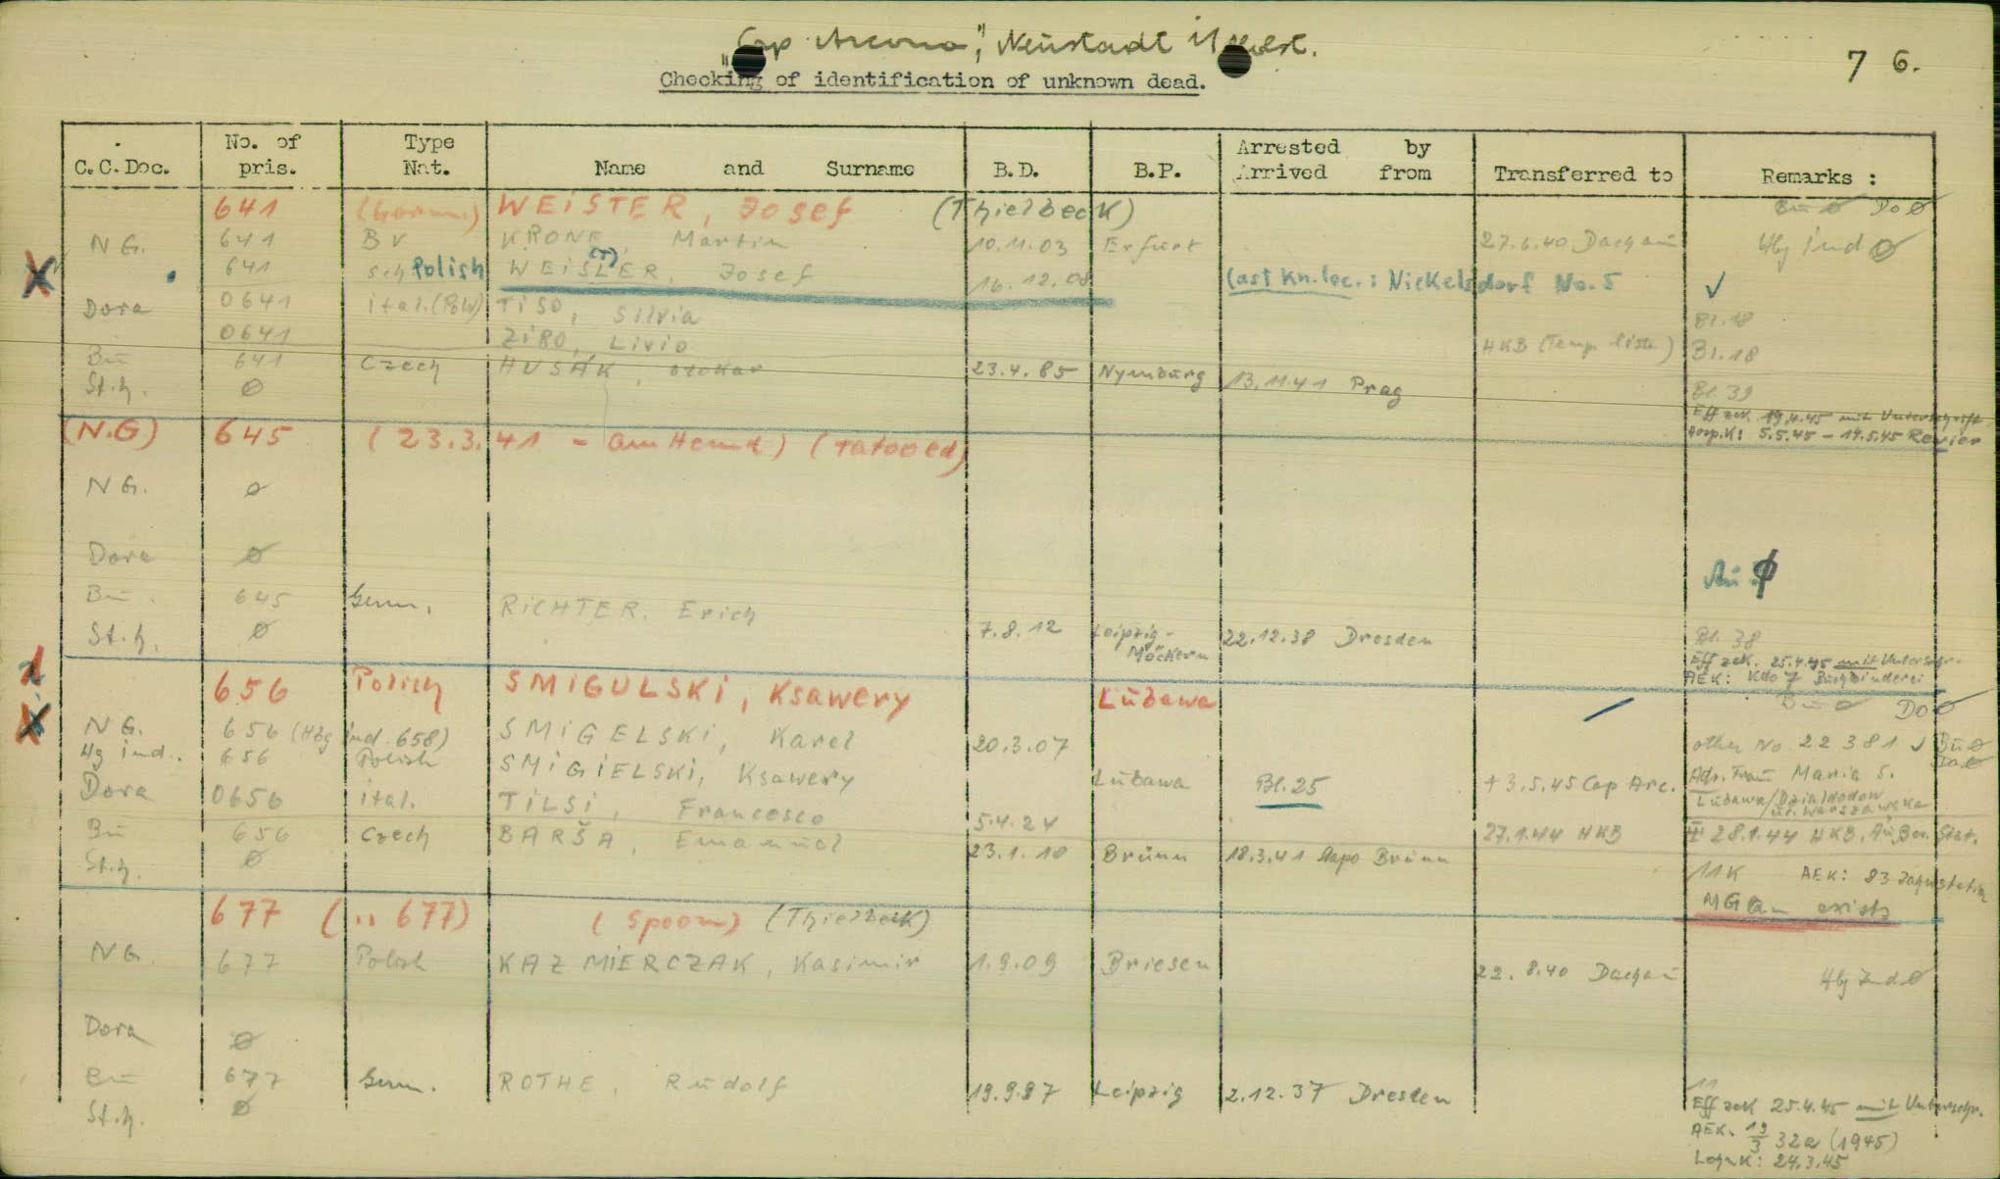 "Cap Arcona", Neustadt i/Holst.
7 6.
Checking of identification of unknown dead.
C.C.Doc. No. of pris. Type Nat. Name and Surname B.D. B.P. Arrested by Arrived from Transferred to Remarks :
641 (Germ.) WEISTER, Josef (Thielbeck) Bu ø Do ø
N G. 641 BV KRONE, Martin 10.11.03 Erfurt 27.6.40 Dachau Hbg ind ø
X 641 sch Polish WEISLER, (T) Josef 16.12.08 last Kn.loc.: Nickelsdorf No. 5 ✓
Dora 0641 ital. (PoW) TISO, Silvia Bl.18
0641 ZIRO, Livio HKB (Temp liste) Bl.18
Bu 641 Czech HUSÁK, Otokar 23.4.85 Nymburg 13.11.41 Prag Bl 39
St.h. ø Eff zek. 19.4.45 mit Unterschrift
Hosp.K: 5.5.45 - 19.5.45 Revier
(N.G) 645 (23.3.41 - am Hemd) (Tatooed)
N G. ø
Dora ø Au. ø
Bu. 645 Germ. RICHTER, Erich 7.8.12 Leipzig-Möckern 22.12.38 Dresden Bl. 38
St.h. ø Eff zek. 25.4.45 mit Unterschr.
AEK: Kdo 7 Buchbinderei
656 Polish SMIGULSKI, Ksawery Lubawa Bu ø Do ø
X N G. 656 (Hbg ind. 658) SMIGELSKI, Karel 20.3.07 other No 22 381 ✓ Bu ø
Hg ind. 656 Polish SMIGIELSKI, Ksawery Lubawa Bl.25 + 3.5.45 Cap Arc. Adr. Frau Maria S.
Lubawa/Dzialdodow
ul. Warszawska
Dora 0656 ital. TILSI, Francesco 5.4.24 27.1.44 HKB 28.1.44 HKB.
Bu 656 Czech BARŠA, Emanuel 23.1.10 Brünn 18.3.41 Stapo Brünn
St.h. ø 11K AEK: 83
MG an exists
677 (.. 677) (Spoon) (Thielbeck)
N G. 677 Polish KAZMIERCZAK, Kasimir 1.9.09 Briesen 22.8.40 Dachau Hbg Ind ø
Dora ø
Bu 677 Germ. ROTHE, Rudolf 19.9.87 Leipzig 2.12.37 Dresden 11
St.h. ø Eff zek 25.4.45 mit Unterschr.
AEK. 19/3 32a (1945)
Loh.K: 24.3.45